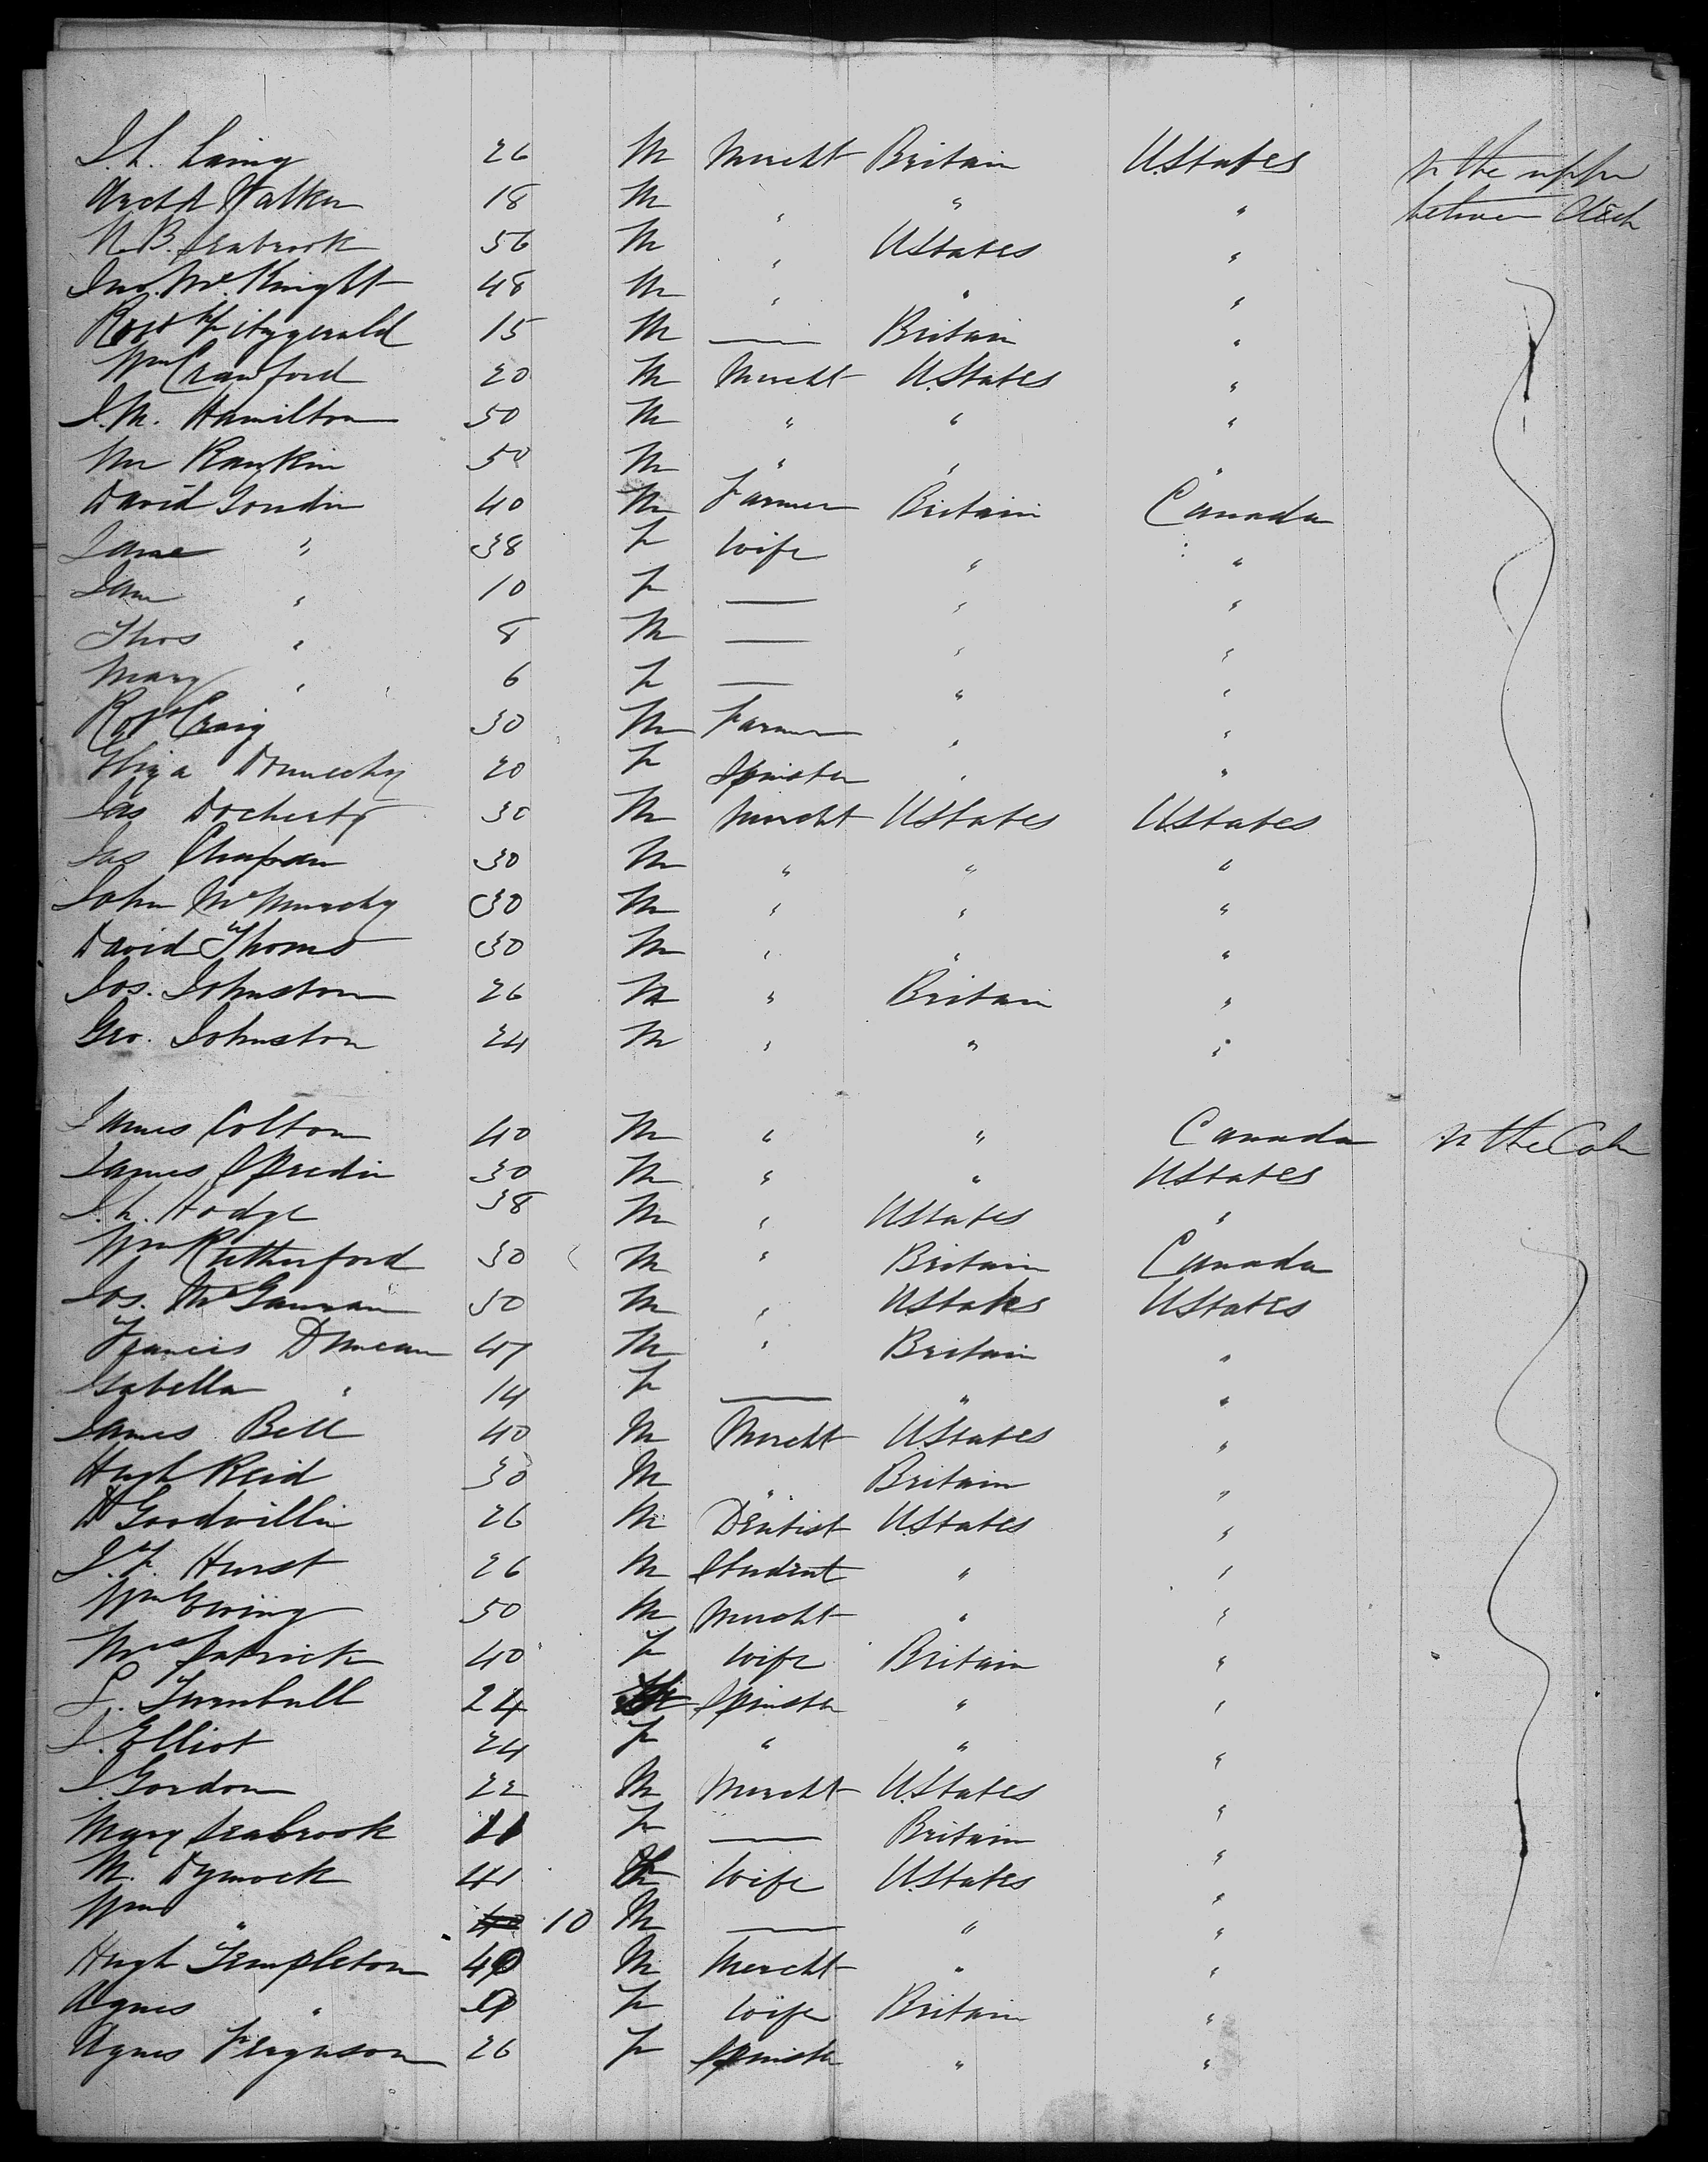 J. L. Laing 26 M Mercht Britain U.States In the upper
Archd Walker 18 M " " " between Deck
N. B. Seabrook 56 M " U.States "
Jno. McKnight 48 M " " "
Robt Fitzgerald 15 M — Britain "
Wm Crawford 20 M Mercht U.States "
J. M. Hamilton 50 M " " "
Mr Rankin 50 M " " "
David Goudie 40 M Farmer Britain Canada
Jane " 38 F Wife " "
Jane " 10 F — " "
Thos " 8 M — " "
Mary " 6 F — " "
Robt Craig 30 M Farmer " "
Eliza 20 F Spinster " "
Jas Docherty 30 M Mercht U.States U.States
Jas Chapman 30 M " " "
John McMurchy 30 M " " "
David Thoms 30 M " " "
Jos. Johnston 26 M " Britain "
Geo. Johnston 24 M " " "
James Colton 40 M " " Canada In the Cabin
James 30 M " " U.States
J. L. Hodge 38 M " U.States "
Wm Rutherford 30 M " Britain Canada
Jos. McGannan 50 M " U.States U.States
Francis Duncan 47 M " Britain "
Isabella " 14 F — " "
James Bell 40 M Mercht U.States "
Hugh Reid 30 M " Britain "
D Goodwillie 26 M Dentist U.States "
J. F. Hurst 26 M Student " "
Wm Ewing 50 M Mercht " "
Mrs Patrick 40 F Wife Britain "
S. Turnbull 24 Spinster " "
J. Elliot 24 F " " "
J. Gordon 22 M Mercht U.States "
Mary Seabrook 11 F — Britain "
M. Dymock 41 F Wife U.States "
Wm " 10 M — " "
Hugh Templeton 40 M Mercht " "
Agnes " F Wife Britain "
Agnes Ferguson 26 F Spinster " "